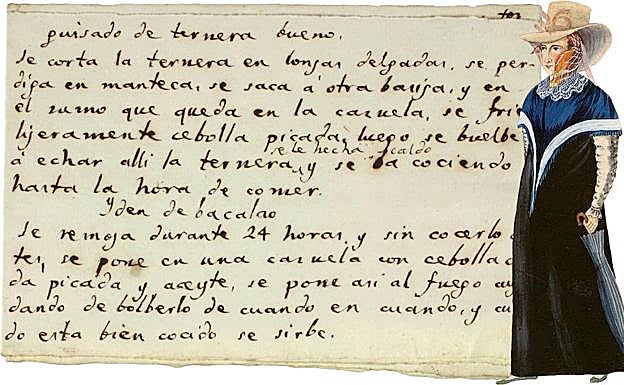 101
guisado de ternera bueno.
Se corta la ternera en lonjas delgadas, se per-
diga en manteca, se saca á otra basija, y en
el zumo que queda en la cazuela, se frie
lijeramente cebolla picada, luego se buelbe
se le hecha caldo
á echar alli la ternera, y se ba cociendo
hasta la hora de comer.
Yden de bacalao
Se remoja durante 24 horas, y sin cocerlo
tes, se pone en una cazuela con cebolla
da picada y aceyte, se pone asi al fuego cuy
dando de bolberlo de cuando en cuando, y cu
do esta bien cocido se sirbe.